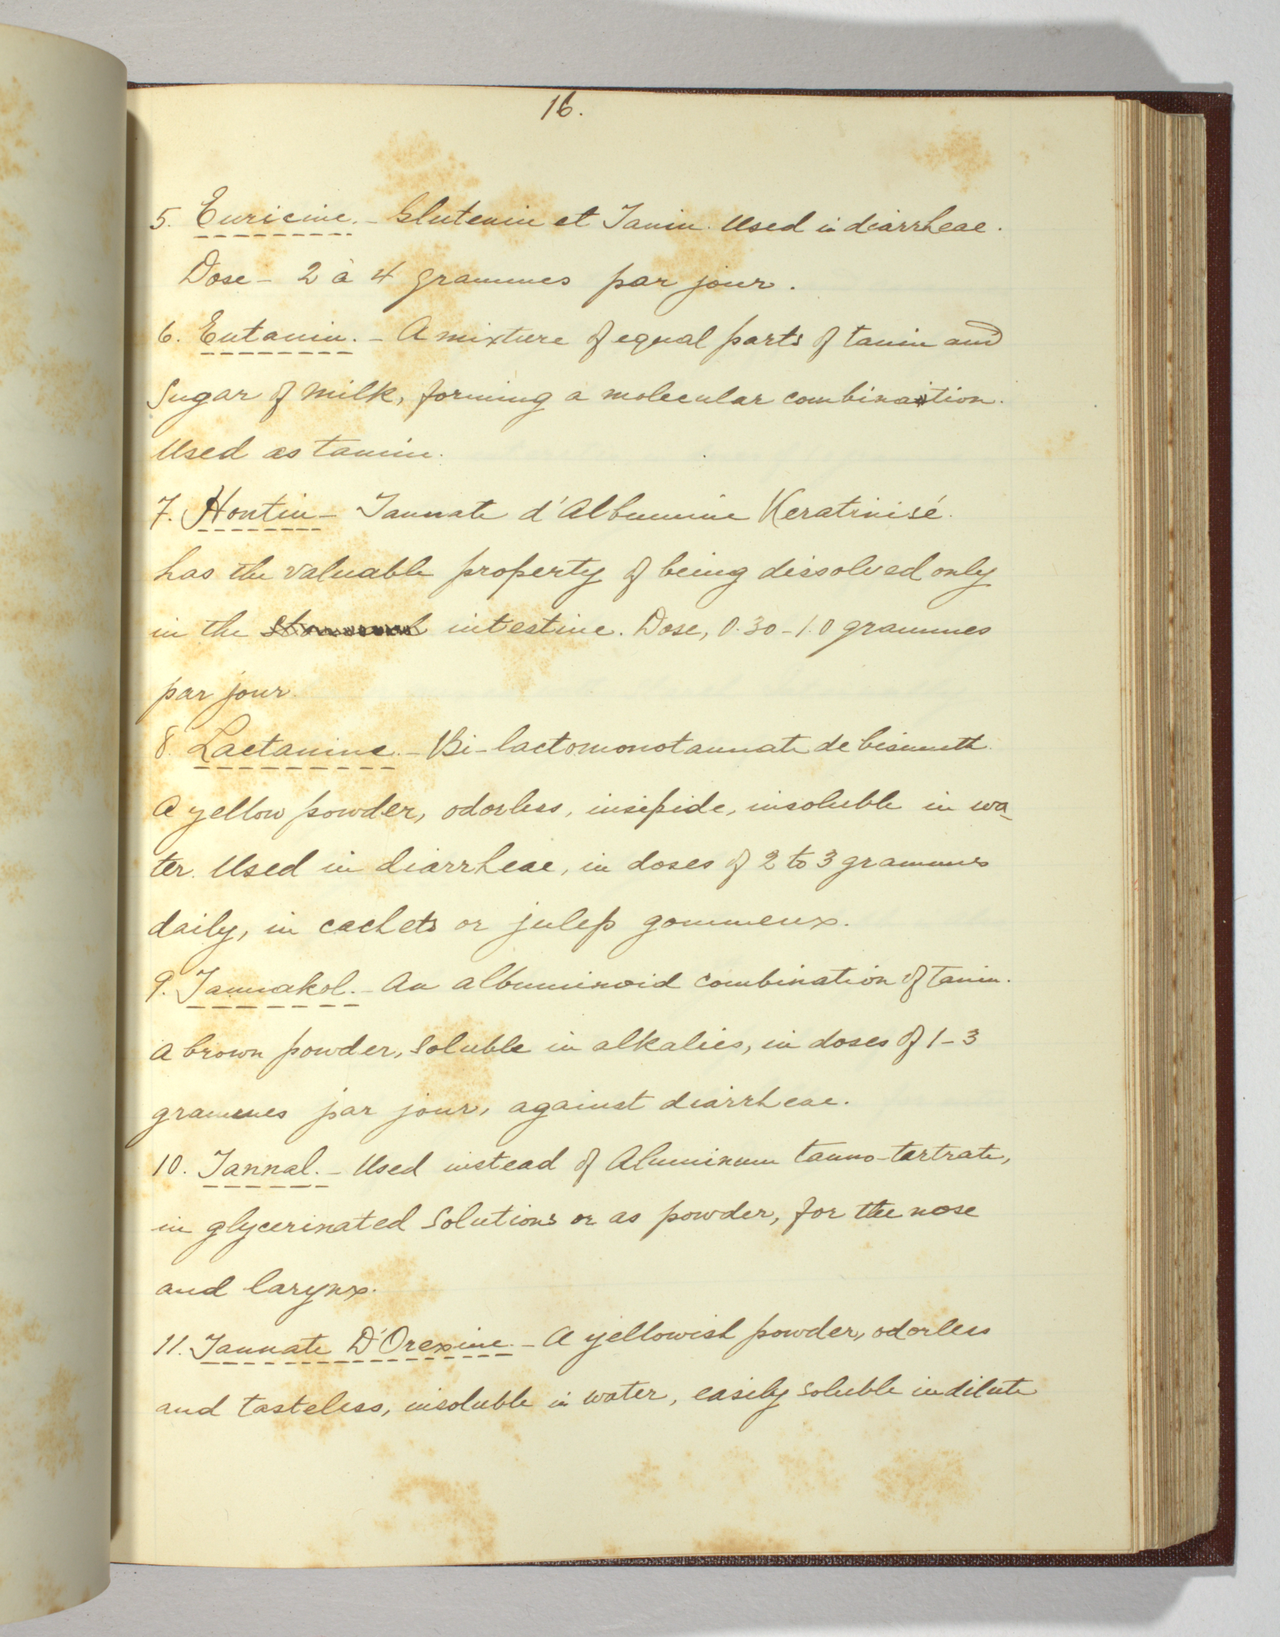 16.
5. Euricine. - Glutenin et Tanin. Used in diarrheae.
Dose - 2 à 4 grammes par jour.
6. Eutanin. - A mixture of equal parts of tanin and
Sugar of milk, forming a molecular combination.
Used as tanin.
7. Hontin - Tannate d'Albumine Keratinisé.
has the valuable property of being dissolved only
in the intestine. Dose, 0.30 - 1.0 grammes
par jour.
8. Lactanine. - Bi-lactomonotannate de bismuth.
A yellow powder, odorless, insipide, insoluble in wa-
ter. Used in diarrheae, in doses of 2 to 3 grammes
daily, in cachets or julep gommeux.
9. Tannakol. - An albuminoid combination of tanin.
A brown powder, soluble in alkalies, in doses of 1-3
grammes par jour, against diarrheae.
10. Tannal. - Used instead of Aluminum tanno-tartrate,
in glycerinated solutions or as powder, for the nose
and larynx.
11. Tannate D'Orexine. - A yellowish powder, odorless
and tasteless, insoluble in water, easily soluble in dilute